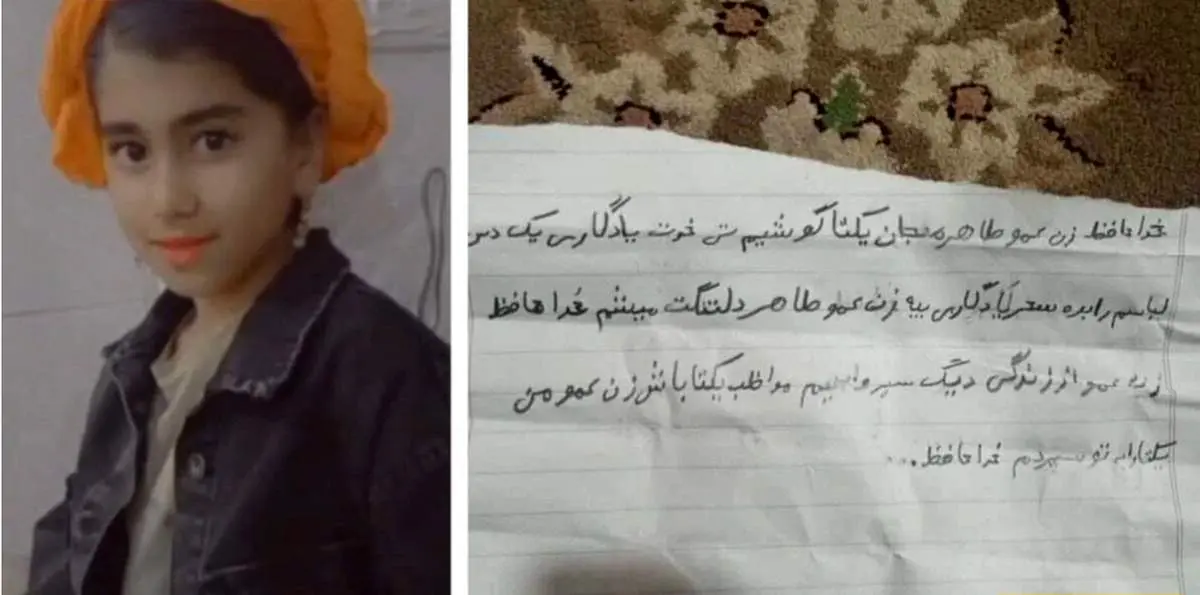 خداحافظ زن عمو طاهره جان یکتا گوشیم تی خوت یادگاری یک دس
لباسم را بده سحر یادگاری بیه زن عمو طاهر دلتنگت میشم خداحافظ
زن عمو از زندگی دیگ سیر وابیم مواظب یکتا باش زن عمو من
یکتا را به تو سپردم خداحافظ...